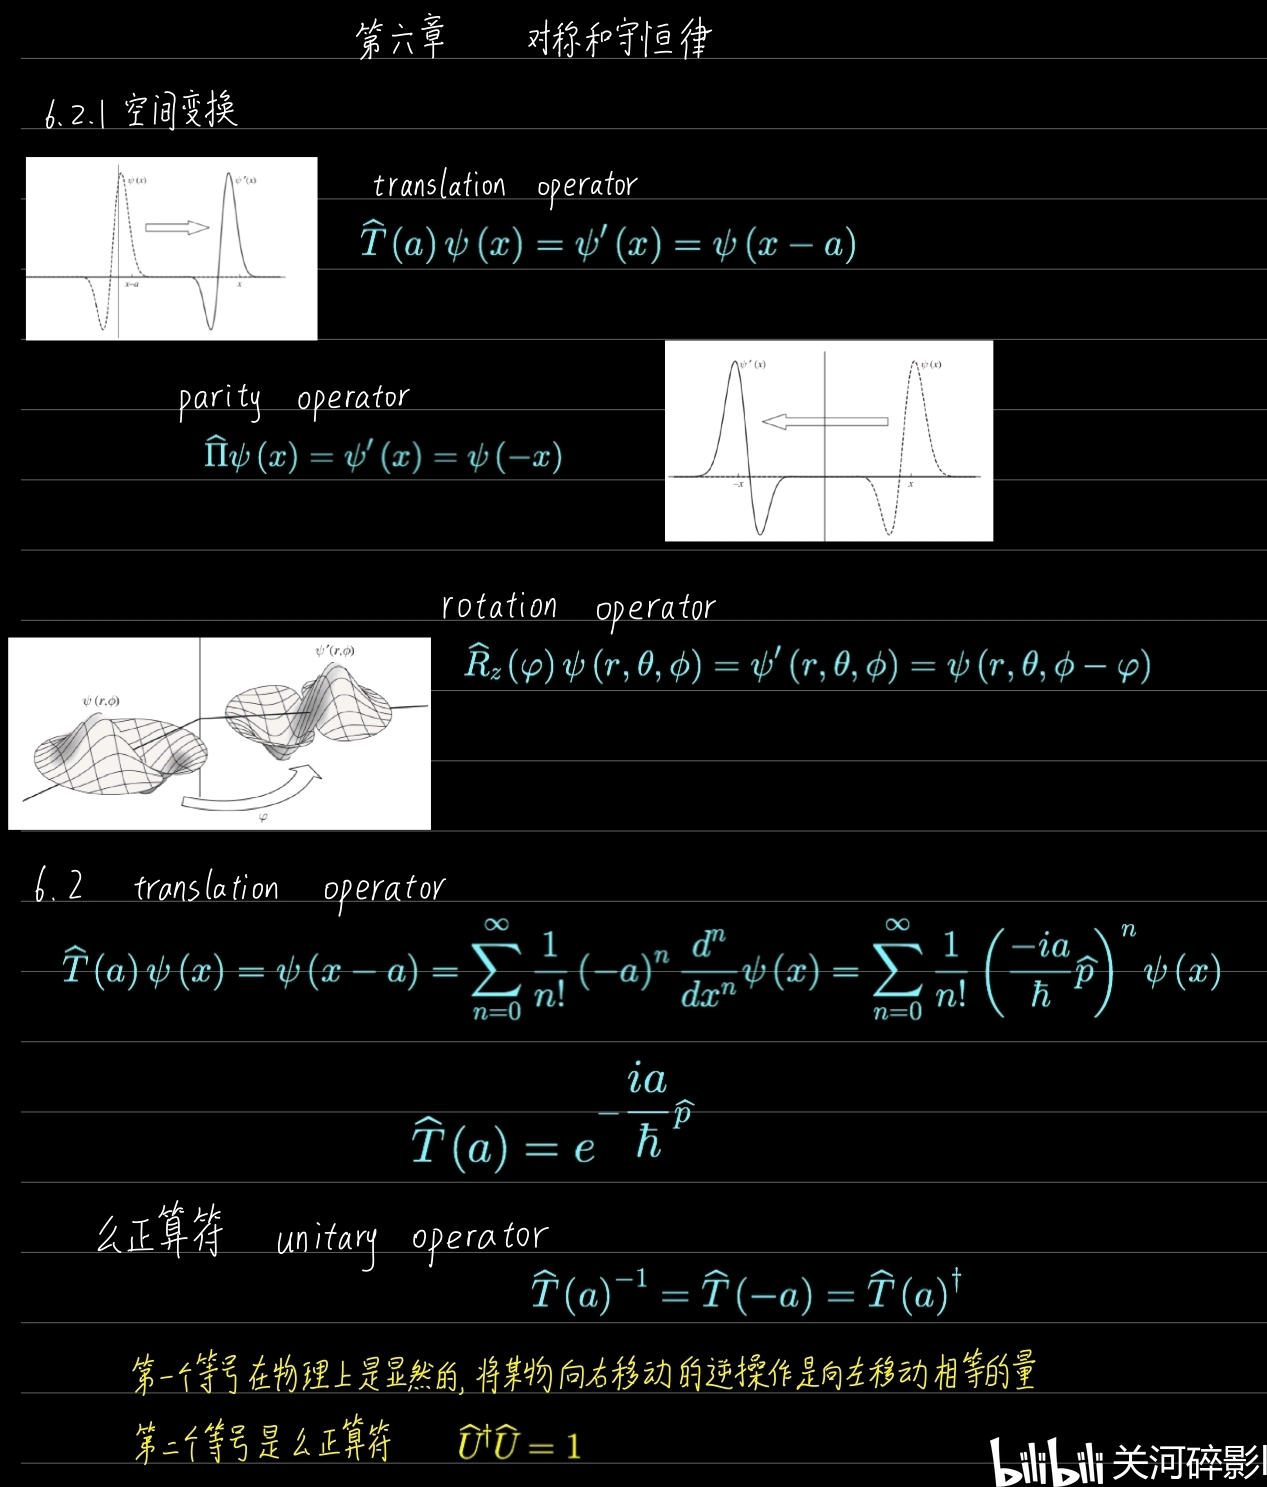 第六章 对称和守恒律
6.2.1 空间变换
ψ(x) ψ′(x)
x−a x
translation operator
T̂(a)ψ(x) = ψ′(x) = ψ(x − a)
parity operator
Π̂ψ(x) = ψ′(x) = ψ(−x)
ψ′(x) ψ(x)
−x x
rotation operator
R̂_z(φ)ψ(r, θ, ϕ) = ψ′(r, θ, ϕ) = ψ(r, θ, ϕ − φ)
ψ′(r,ϕ)
ψ(r,ϕ)
φ
6.2 translation operator
T̂(a)ψ(x) = ψ(x − a) = ∑_{n=0}^{∞} \frac{1}{n!} (−a)^n \frac{d^n}{dx^n} ψ(x) = ∑_{n=0}^{∞} \frac{1}{n!} (\frac{−ia}{ħ} p̂)^n ψ(x)
T̂(a) = e^{−\frac{ia}{ħ} p̂}
么正算符 unitary operator
T̂(a)^{−1} = T̂(−a) = T̂(a)^†
第一个等号在物理上是显然的, 将某物向右移动的逆操作是向左移动相等的量
第二个等号是么正算符 Û^†Û = 1
bilibili 关河碎影